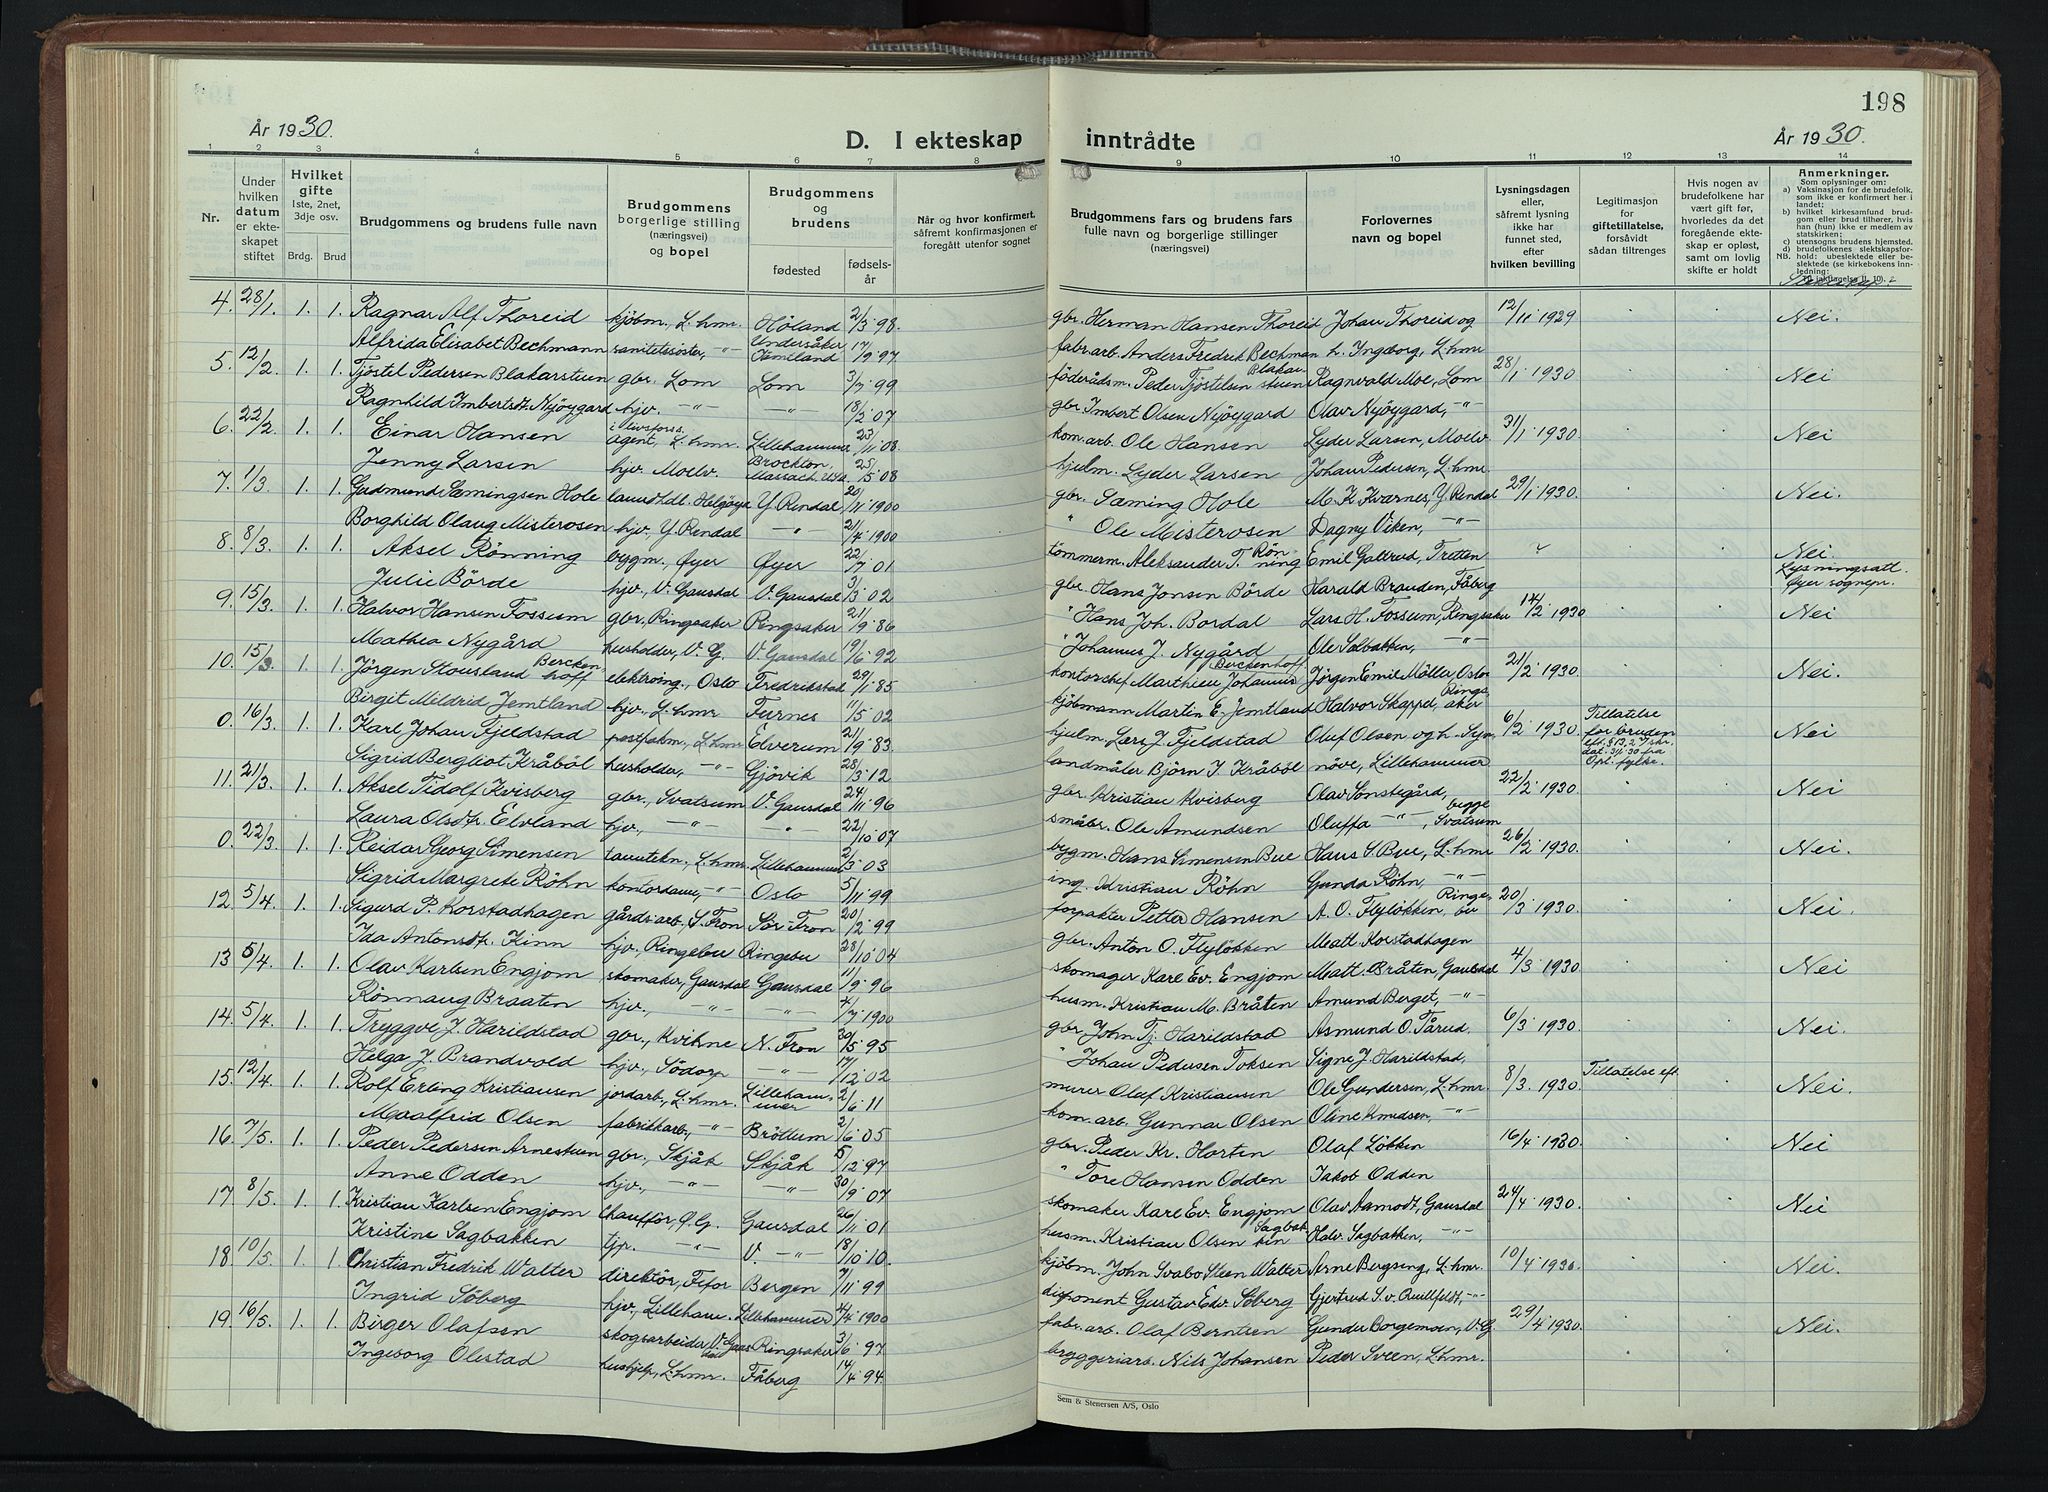 198
År 1930.
D. I ekteskap inntrådte
År 1930.
1 2 3 4 5 6 7 8 9 10 11 12 13 14
Nr.
Under hvilken datum er ekteskapet stiftet
Hvilket gifte 1ste, 2net, 3dje osv.
Brdg. Brud
Brudgommens og brudens fulle navn
Brudgommens borgerlige stilling (næringsvei) og bopel
Brudgommens og brudens
fødested
fødselsår
Når og hvor konfirmert, såfremt konfirmasjonen er foregått utenfor sognet
Brudgommens fars og brudens fars fulle navn og borgerlige stillinger (næringsvei)
Forlovernes navn og bopel
Lysningsdagen eller, såfremt lysning ikke har funnet sted, efter hvilken bevilling
Legitimasjon for giftetillatelse, forsåvidt sådan tiltrenges
Hvis nogen av brudefolkene har vært gift før, hvorledes da det foregående ekteskap er opløst, samt om lovlig skifte er holdt
Anmerkninger.
Som oplysninger om:
a) Vaksinasjon for de brudefolk, som ikke er konfirmert her i landet;
b) hvilket kirkesamfund brudgom eller brud tilhører, hvis han (hun) ikke er medlem av statskirken;
c) utensogns brudens hjemsted.
d) brudefolkenes slektskapsforhold: ubeslektede eller beslektede (se kirkebokens innledning:
4. 28/1. 1. 1. Ragnar Alf Thoreid kjöbm., L.hmr. Höland 2/3 98. gbr. Herman Hansen Thoreid Johan Thoreid og 12/11 1929 Nei.
Alfrida Elisabet Bechmann sanitetssöster, -"- Undersåker Jämtland 17/9 97 fabr.arb. Anders Fredrik Bechman h. Ingeborg, L.hmr
5. 12/2. 1. 1. Tjöstel Pedersen Blakarstuen gbr. Lom Lom 3/7 99 föderådsm. Peder Tjöstelsen Blakarstuen Ragnvald Moe, Lom 28/1 1930 Nei
Ragnhild Imbertsdt. Nyöygard hjv. -"- -"- 18/2 07 gbr. Imbert Olsen Nyöygard Olav Nyöygard, -"-
6. 22/2. 1. 1. Einar Hansen agent i livsfors., L.hmr. Lillehammer 23/11 08. kom. arb. Ole Hansen Lyder Larsen, Moelv 31/1 1930 Nei
Jenny Larsen hjv. Moelv. Brockton, Massach. USA. 25/5 08 hjulm. Lyder Larsen Johan Pedersen, L.hmr.
7. 1/3. 1. 1. Gudmund Sæmingsen Hole landhdl. Helgöya Y. Rendal 20/11 1900 gbr. Sæming Hole M. K. Kvarnes, Y. Rendal 29/1 1930. Nei.
Borghild Olaug Misterosen hjv., Y. Rendal " 21/4 1900 " Ole Misterosen Dagny Viken, -"-
8. 8/3. 1. 1. Aksel Rönning bygm., Øyer Øyer 22/7 01 tömmerm. Aleksander T. Rönning Emil Gallrud, Tretten Nei. Lysningsatt. Øyer sognepr.
Julie Börde hjv., V. Gausdal V. Gausdal 3/3 02 gbr. Hans Jonsen Börde Harald Brænden, Fåberg
9. 15/3. 1. 1. Halvor Hansen Fossum gbr., Ringsaker Ringsaker 21/9 86 " Hans Joh. Bordal Lars H. Fossum, Ringsaker 14/2 1930 Nei
Mathea Nygård husholder, V. G. V. Gausdal 19/6 92 " Johannes J. Nygård Ole Solbakken, -"-
10. 15/3. 1. 1. Jörgen Stousland Berckenhoff elektroing., Oslo Fredrikstad 29/1 85 kontorchef Marthien Johannes Berckenhoff Jörgen Emil Möller, Oslo 21/2 1930. Nei.
Birgit Meldrid Jemtland hjv., L.hmr Furnes 11/5 02 kjöbmann Martin E. Jemtland Halvor Skappel, Ringsaker
0. 16/3. 1. 1. Karl Johan Fjeldstad postpakm., L.hmr. Elverum 21/9 83 hjulm. Lars J. Fjeldstad Oluf Olsen og h. Syn- 6/2 1930 Tillatelse for bruden Opl. fylke. Nei
Sigrid Bergliot Kråböl husholder, -"- Gjövik 28/3 12 landmåler Björn J. Kråböl növe, Lillehammer
11. 21/3. 1. 1. Aksel Tidolf Kvisberg gbr., Svatsum V. Gausdal 24/11 96 gbr. Kristian Kvisberg Olav Sönstegård, 22/2 1930. Nei
Laura Olsdtr. Elvland hjv., -"- " 22/10 07 småbr. Ole Amundsen Oluffa -"-, begge Svatsum
0. 22/3. 1. 1. Reidar Georg Simensen tanntekn., L.hmr. Lillehammer 2/3 03 bygm. Hans Simensen Bue Hans S. Bue, L.hmr 26/2 1930. Nei.
Sigrid Margrete Röhn kontordame, -"- Oslo 5/11 99 ing. Kristian Röhn Gunda Röhn, -"-
12. 5/4. 1. 1. Sigurd P. Korstadhagen gårdsarb., S. Fron Sör-Fron 20/12 99 forpakter Petter Hansen A. O. Flylökken, Ringebu 20/3 1930. Nei.
Ida Antonsdtr. Kinn hjv., Ringebu Ringebu 28/10 04 gbr. Anton O. Flylökken Matt. Korstadhagen
13. 5/4. 1. 1. Olav Karlsen Engjom skomaker, Gausdal Gausdal 11/9 96 skomager Karl Ev. Engjom Matt. Bråten, Gausdal 4/3 1930. Nei
Rönnaug Braaten hjv., -"- -"- 4/7 1900 husm. Kristian M. Bråten Amund Berget, -"-
14. 5/4. 1. 1. Tryggve J. Harildstad gbr., Kvikne N. Fron 30/5 95 gbr. John Tj. Harildstad Asmund O. Tårud. 6/3 1930. Nei.
Helga J. Brandvold hjv., Södorp -"- 17/12 02 " Johan Pedersen Toksen Signe J. Harildstad,
15. 12/4. 1. 1. Rolf Erling Kristiansen jordarb., L.hmr. Lillehammer 2/6 11 murer Olaf Kristiansen Ole Gundersen, L.hmr. 8/3. 1930. Tillatelse eft. Nei.
Maalfrid Olsen fabrikkarb., -"- Bröttum 2/6 05 kom. arb. Gunnar Olsen Oline Knudsen, -"-
16. 7/5. 1. 1. Peder Pedersen Arnestuen gbr., Skjåk Skjåk 5/12 97 gbr. Peder Kr. Horten Olaf Løkken 16/4 1930. Nei
Anne Odden hjv., -"- -"- 30/9 07 " Tore Hansen Odden Jakob Odden
17. 8/5. 1. 1. Kristian Karlsen Engjom Chaufför, Ø. G. Gausdal 26/11 01 skomaker Karl Ev. Engjom Olav Aamodt, Gausdal 24/4 1930. Nei
Kristine Sagbakken tjp. -"- V. -"- 18/10 10. husm. Kristian Olsen Sagbakken Halv. Sagbakken, -"-
18. 10/5. 1. 1. Christian Fredrik Walter direktör, Fefor Bergen 7/11 99 kjöbm. John Svabo Steen Walter Arne Bergseng, L.hmr. 10/4 1930. Nei.
Ingrid Söberg hjv., Lilleham. Lillehammer 4/4 1900 disponent Gustav Edv. Söberg Gjertrud S. v. Quillfeldt, -"-
19. 16/5. 1. 1. Birger Olafsen skogsarbeider, V. Gausdal Ringsaker 3/6 97 fabr. arb. Olaf Berntsen Gunder Borgemoen, V. G. 29/4 1930. Nei.
Ingeborg Olestad hushjelp, L.hmr. Fåberg 14/4 94 bryggeriarb. Nils Johansen Peder Sveen, L.hmr.
Sem & Stenersen A/S, Oslo